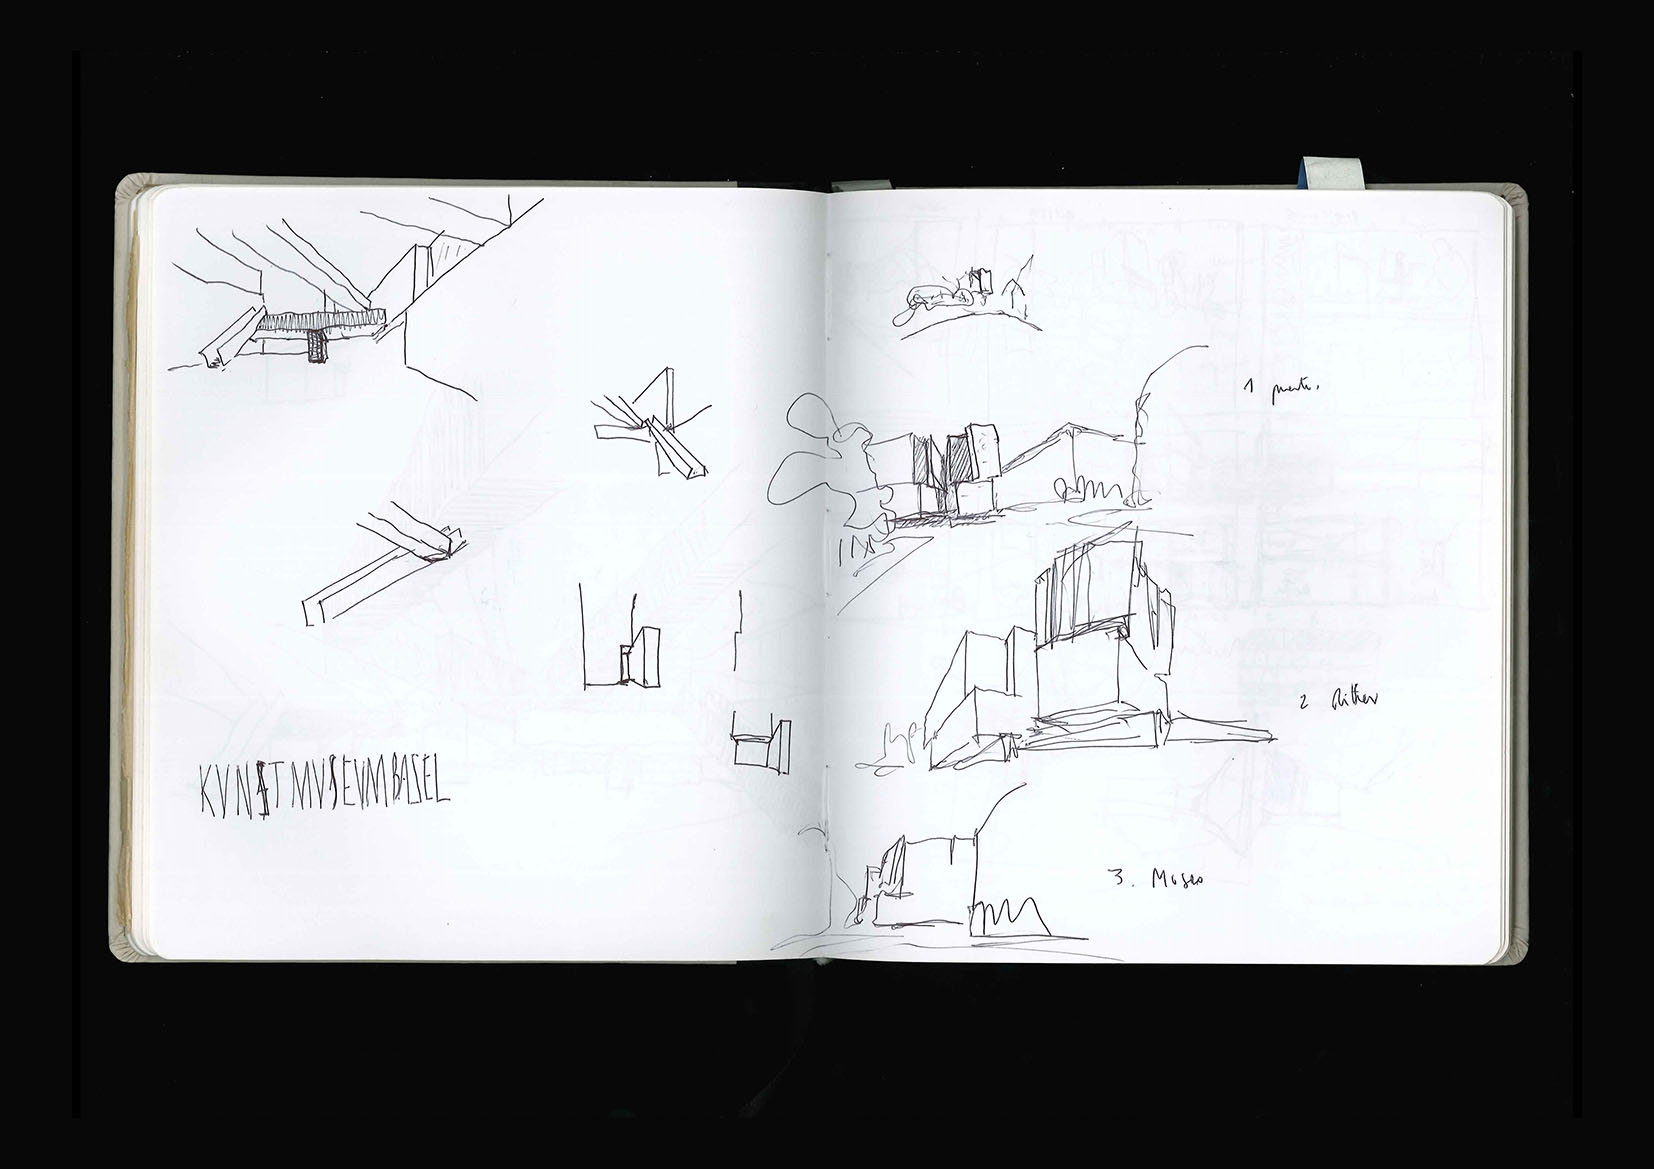 KVNSTMVSEVMBASEL
1 puente.
2 Ritter
3. Museo